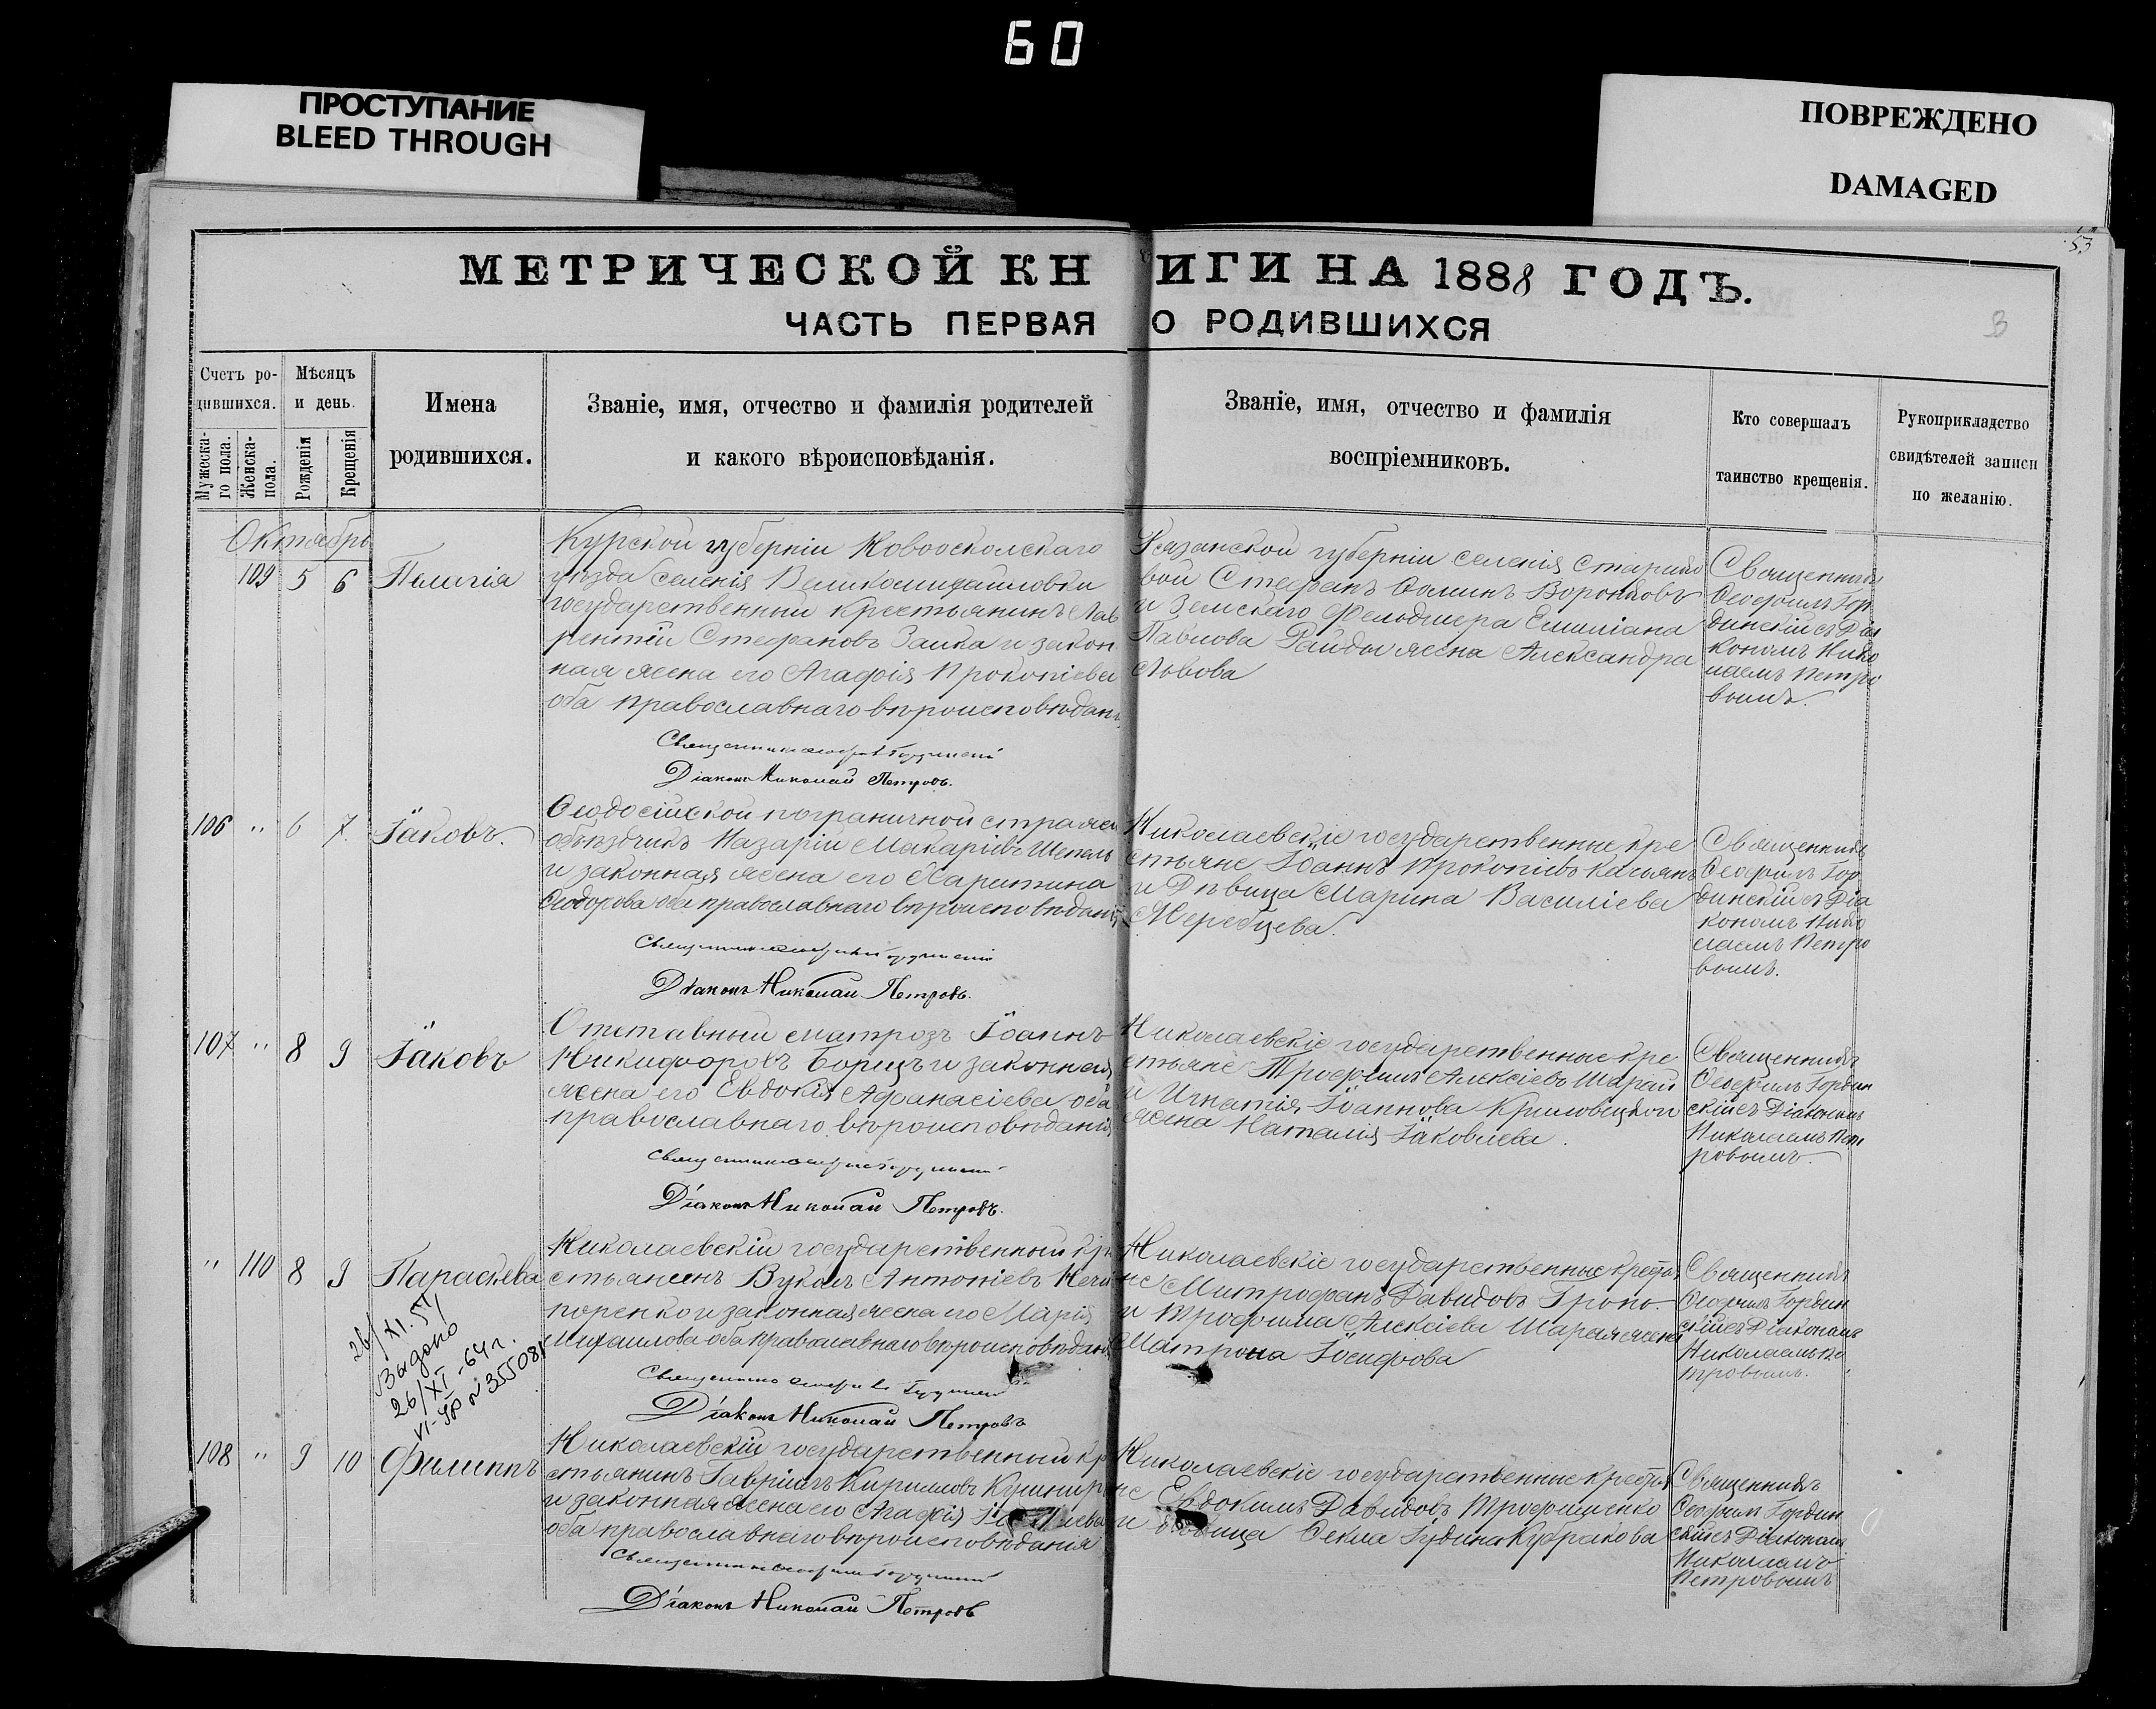 60
ПРОСТУПАНИЕ
BLEED THROUGH
ПОВРЕЖДЕНО
DAMAGED
53
МЕТРИЧЕСКОЙ КНИГИ НА 1888 ГОДЪ.
ЧАСТЬ ПЕРВАЯ О РОДИВШИХСЯ
3
Счетъ ро-
дившихся.
Мужеска-
го пола.
Женска-
пола.
Мѣсяцъ
и день.
Рожденія
Крещенія
Имена
родившихся.
Званіе, имя, отчество и фамилія родителей
и какого вѣроисповѣданія.
Званіе, имя, отчество и фамилія
воспріемниковъ.
Кто совершалъ
таинство крещенія.
Рукоприкладство
свидѣтелей записи
по желанію.
Октябрь
109 5 6 Пелагія
Курской губерніи Новооскольскаго
уѣзда селенія Великомихайловки
государственный крестьянинъ Лав
рентій Стефановъ Заика и закон
ная жена его Агафія Прокопіева
оба православнаго вѣроисповѣдан
Священникъ
Діаконъ Николай Петровъ.
Казанской губерніи селенія
вой Стефанъ Воронковъ
и Земскаго Фельдшера Емиліана
Павлова жена Александра
Львова
Священникъ
Гор
динскій съ Діа
кономъ Нико
лаемъ Петро
вымъ.
106 " 6 7 Іаковъ.
Ѳеодосійской пограничной стражи
объѣздчикъ Назарій Макаріевъ
и законная жена его Харитина
Ѳеодорова оба православнаго вѣроисповѣданія
Священникъ
Діаконъ Николай Петровъ.
Николаевскіе государственные кре
стьяне Іоаннъ Прокопіевъ
и Дѣвица Марина Василіева
Жеребцева.
Священникъ
Гор
динскій съ Діа
кономъ Нико
лаемъ Петро
вымъ.
107 " 8 9 Іаковъ
Отставный матрозъ Іоаннъ
Никифоровъ Борщъ и законная
жена его Евдокія Афанасіева оба
православнаго вѣроисповѣданія
Священникъ
Діаконъ Николай Петровъ.
Николаевскіе государственные кре
стьяне Трофимъ Алексіевъ Шарай
и Игнатія Іоаннова
жена Наталія Іаковлева.
Священникъ
Гордин
скій съ Діакономъ
Николаемъ Пет
ровымъ.
" 110 8 9 Параскева
26/XI.51
26/XI-64г.
Николаевскій государственный кре
стьянинъ Вуколъ Антоніевъ Нечи
поренко и законная жена его Марія
Михайлова оба православнаго вѣроисповѣданія
Священникъ
Діаконъ Николай Петровъ
Николаевскіе государственные крестья
не Митрофанъ Давидовъ
и Трофима Алексіева Шарая жена
Матрона Іосифова
Священникъ
Гордин
скій съ Діакономъ
Николаемъ Пе
тровымъ.
108 " 9 10 Филиппъ
Николаевскій государственный кре
стьянинъ Гавріилъ Кириловъ Кушниръ
и законная жена его Агафія
оба православнаго вѣроисповѣданія
Священникъ
Діаконъ Николай Петровъ
Николаевскіе государственные крестья
не Евдокимъ Давидовъ Трофименко
и дѣвица Ѳекла
Священникъ
Гордин
скій съ Діакономъ
Николаемъ
Петровымъ